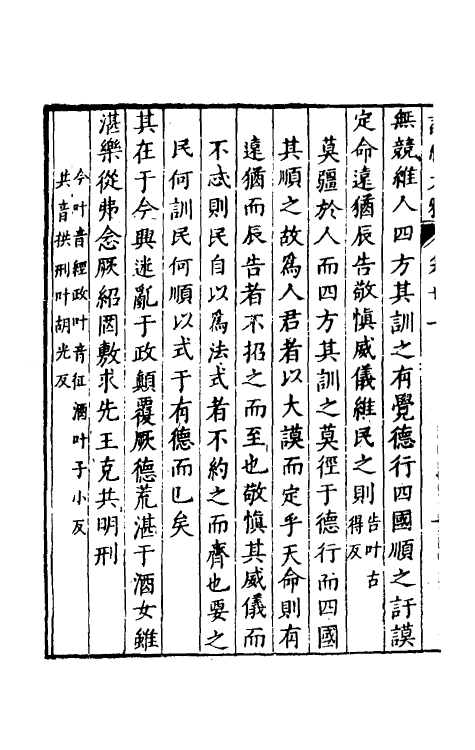 無競維人四方其訓之有覺德行四國順之訏謨
定命遠猶辰告敬愼威儀維民之則
告叶古
得反
莫疆於人而四方其訓之莫徑于德行而四國
其順之故爲人君者以大謨而定乎天命則有
遠猶而辰告者不招之而至也敬愼其威儀而
不忒則民自以爲法式者不約之而齊也要之
民何訓民何順以式于有德而已矣
其在于今興迷亂于政顛覆厥德荒湛于酒女雖
湛樂從弗念厥紹罔敷求先王克共明刑
今叶音經政叶音征酒叶子小反
共音拱刑叶胡光反